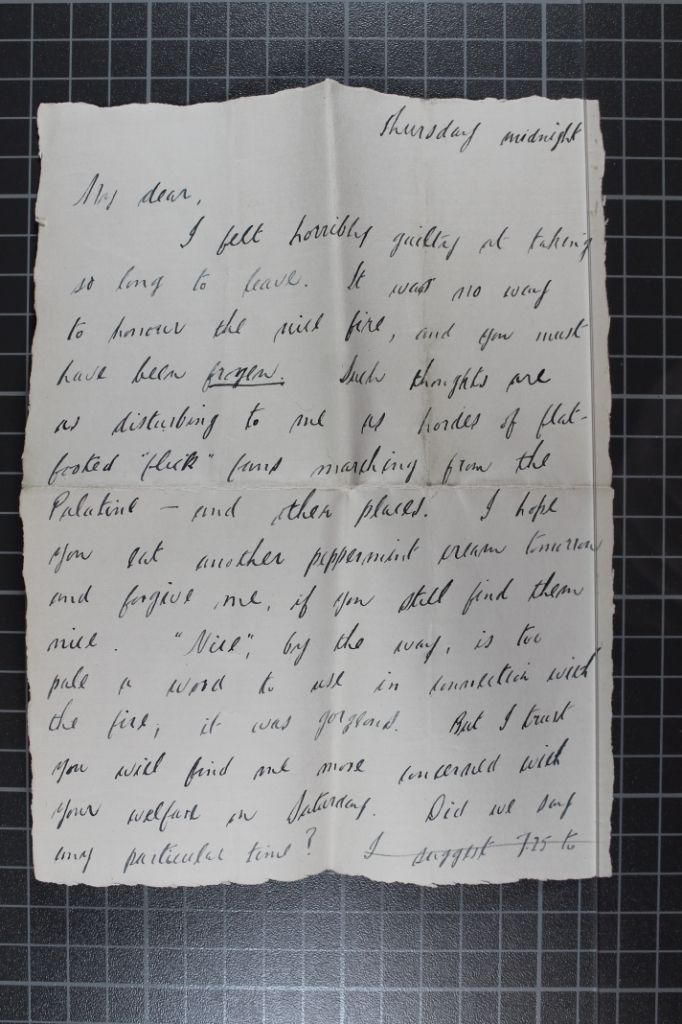 Thursday midnight
My dear,
I felt horribly guilty at taking
so long to leave. It was no way
to honour the nice fire, and you must
have been frozen. Such thoughts are
as disturbing to me as hordes of flat-
footed "flick" fans marching from the
Palatine — and other places. I hope
you eat another peppermint cream tomorrow
and forgive me, if you still find them
nice. "Nice", by the way, is too
pale a word to use in connection with
the fire; it was gorgeous. But I trust
you will find me more concerned with
your welfare on Saturday. Did we say
any particular time? I suggest 7.15 to